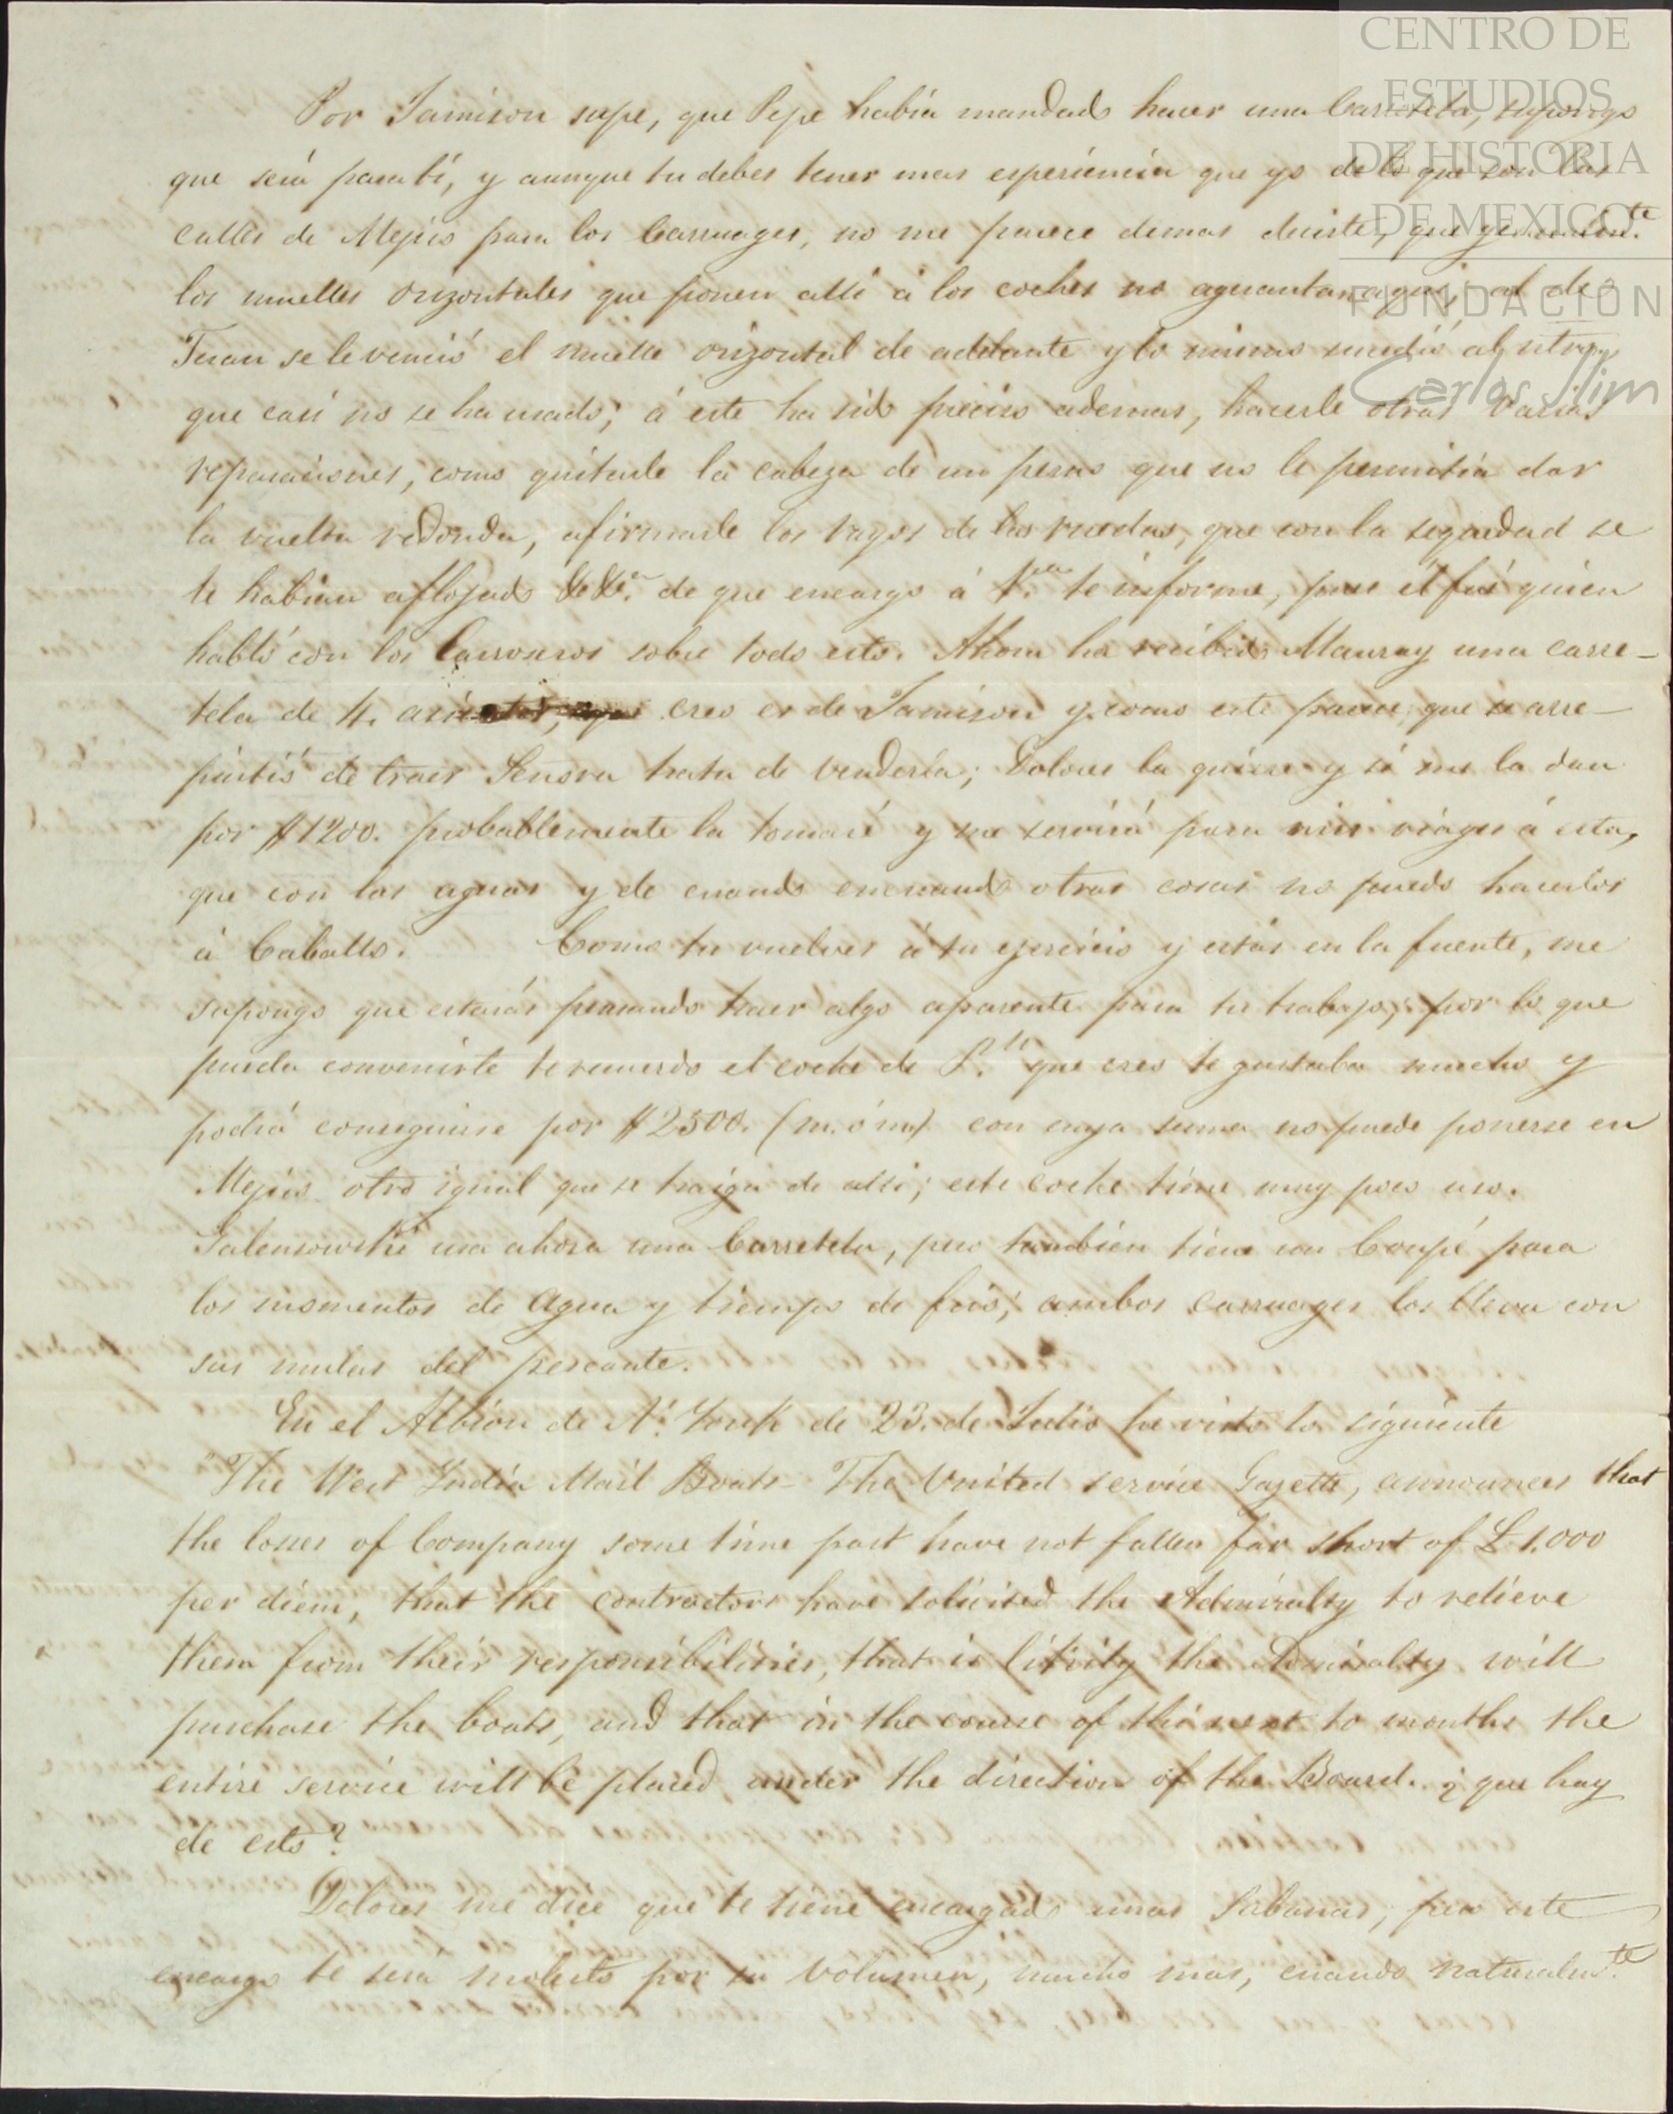 CENTRO DE
ESTUDIOS
DE HISTORIA
DE MEXICO
FUNDACIÓN
Carlos Slim
Por Jamison supe, que Pepe habia mandado hacer una Carretela, supongo
que será para tí, y aunque tu debes tener mas esperiencia que yo de lo que son las
calles de Mejico para los Carruages, no me parece demas decirte, que generalm.te
los muelles orizontales que ponen alli á los coches no aguantan aqui, al de
Juan se le venció el muelle orizontal de adelante y lo mismo sucedió al otro,
que casi no se ha usado; á este ha sido preciso ademas, hacerle otras varias
reparaciones, como quitarle la cabeza de un perno que no le permitia dar
la vuelta redonda, afirmarle los rayos de las ruedas, que con la sequedad se
le habian aflojado &c &c. de que encargo á te informe, pues él fué quien
habló con los Carroceros sobre todo esto. Ahora ha recibido Manray una carre-
tela de 4. creo es de Jamison y como este parece que se arre-
pintió de traer Senora trata de venderla; Dolores la quiere y si me la dan
por $1200. probablemente la tomaré y me servirá para mis viages á esta,
que con las aguas y de cuando en cuando otras cosas no puedo hacerlos
á Caballo. Como tu vuelves á tu ejercicio y estás en la fuente, me
supongo que estarás pensando traer algo aparente para tu trabajo; por lo que
pueda convenirte te recuerdo el coche de que creo te gustaba mucho y
podrá conseguirse por $2500. (m. ó m.) con cuya suma no puede ponerse en
Mejico otro igual que se traiga de alli; este coche tiene muy poco uso.
Galensowski usa ahora una Carretela, pero tambien tiene un Coupé para
los momentos de agua y tiempo de frio; ambos carruages los lleva con
sus mulas del pescante.
En el Albion de N. York de 23. de Julio he visto lo siguiente
"The West India Mail Boats - The United service Gazette, announces that
the losses of Company some time past have not fallen far short of £1.000
per diem, that the contractors have solicited the Admiralty to relieve
them from their responsibilities, that is the Admiralty will
purchase the boats, and that in the course of the next to months the
entire service will be placed under the direction of the Board. ¿que hay
de esto?
Dolores me dice que te tiene encargado unas Sabanas; pero este
encargo te será molesto por su volumen, mucho mas, cuando naturalm.te